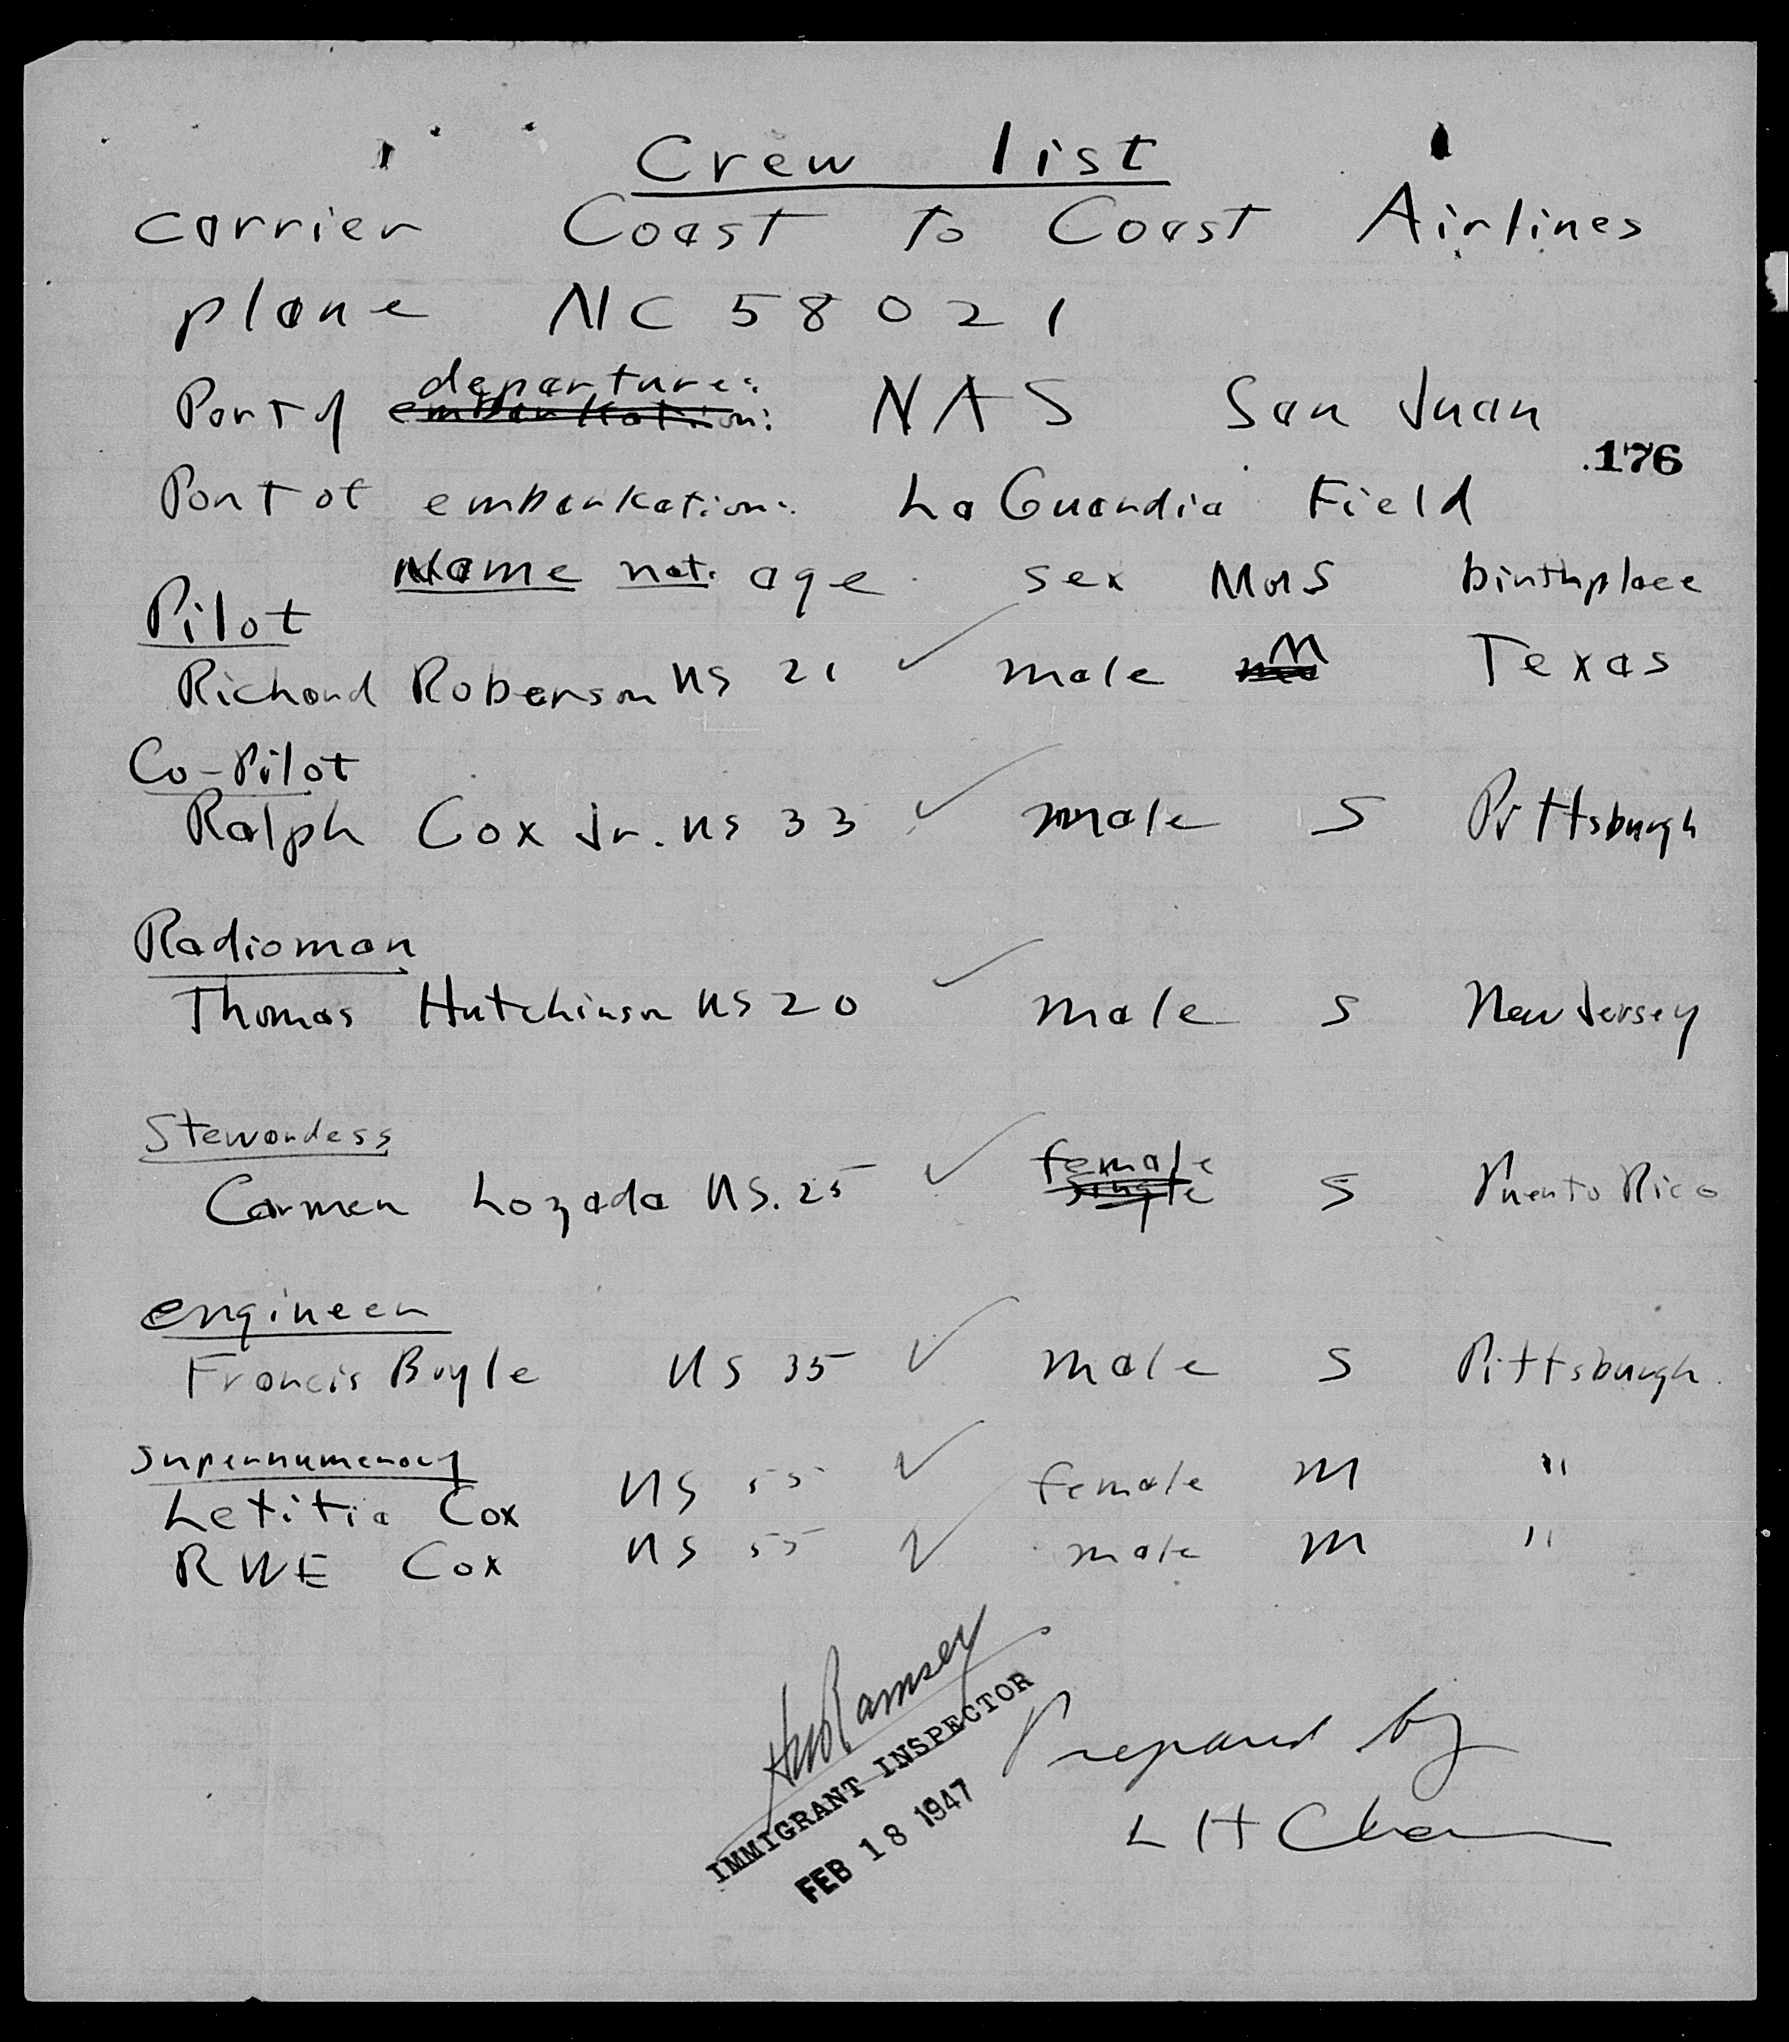 Crew list
carrier Coast to Coast Airlines
plane NC 58021
departure:
Port of embarkation: NAS San Juan
.176
Port of embarkation: La Guardia Field
Name nat. age sex M or S birthplace
Pilot
Richard Roberson US 21 ✓ male M Texas
Co-Pilot
Ralph Cox Jr. US 33 ✓ male S Pittsburgh
Radioman
Thomas Hutchinson US 20 ✓ male S New Jersey
Stewardess
female
Carmen Lozada US. 25 ✓ single S Puerto Rico
engineer
Francis Boyle US 35 ✓ male S Pittsburgh
supernumerary
Letitia Cox US 55 ✓ female M "
RWE Cox US 55 ✓ male M "
Ramsey
IMMIGRANT INSPECTOR
FEB 18 1947
Prepared by
L H